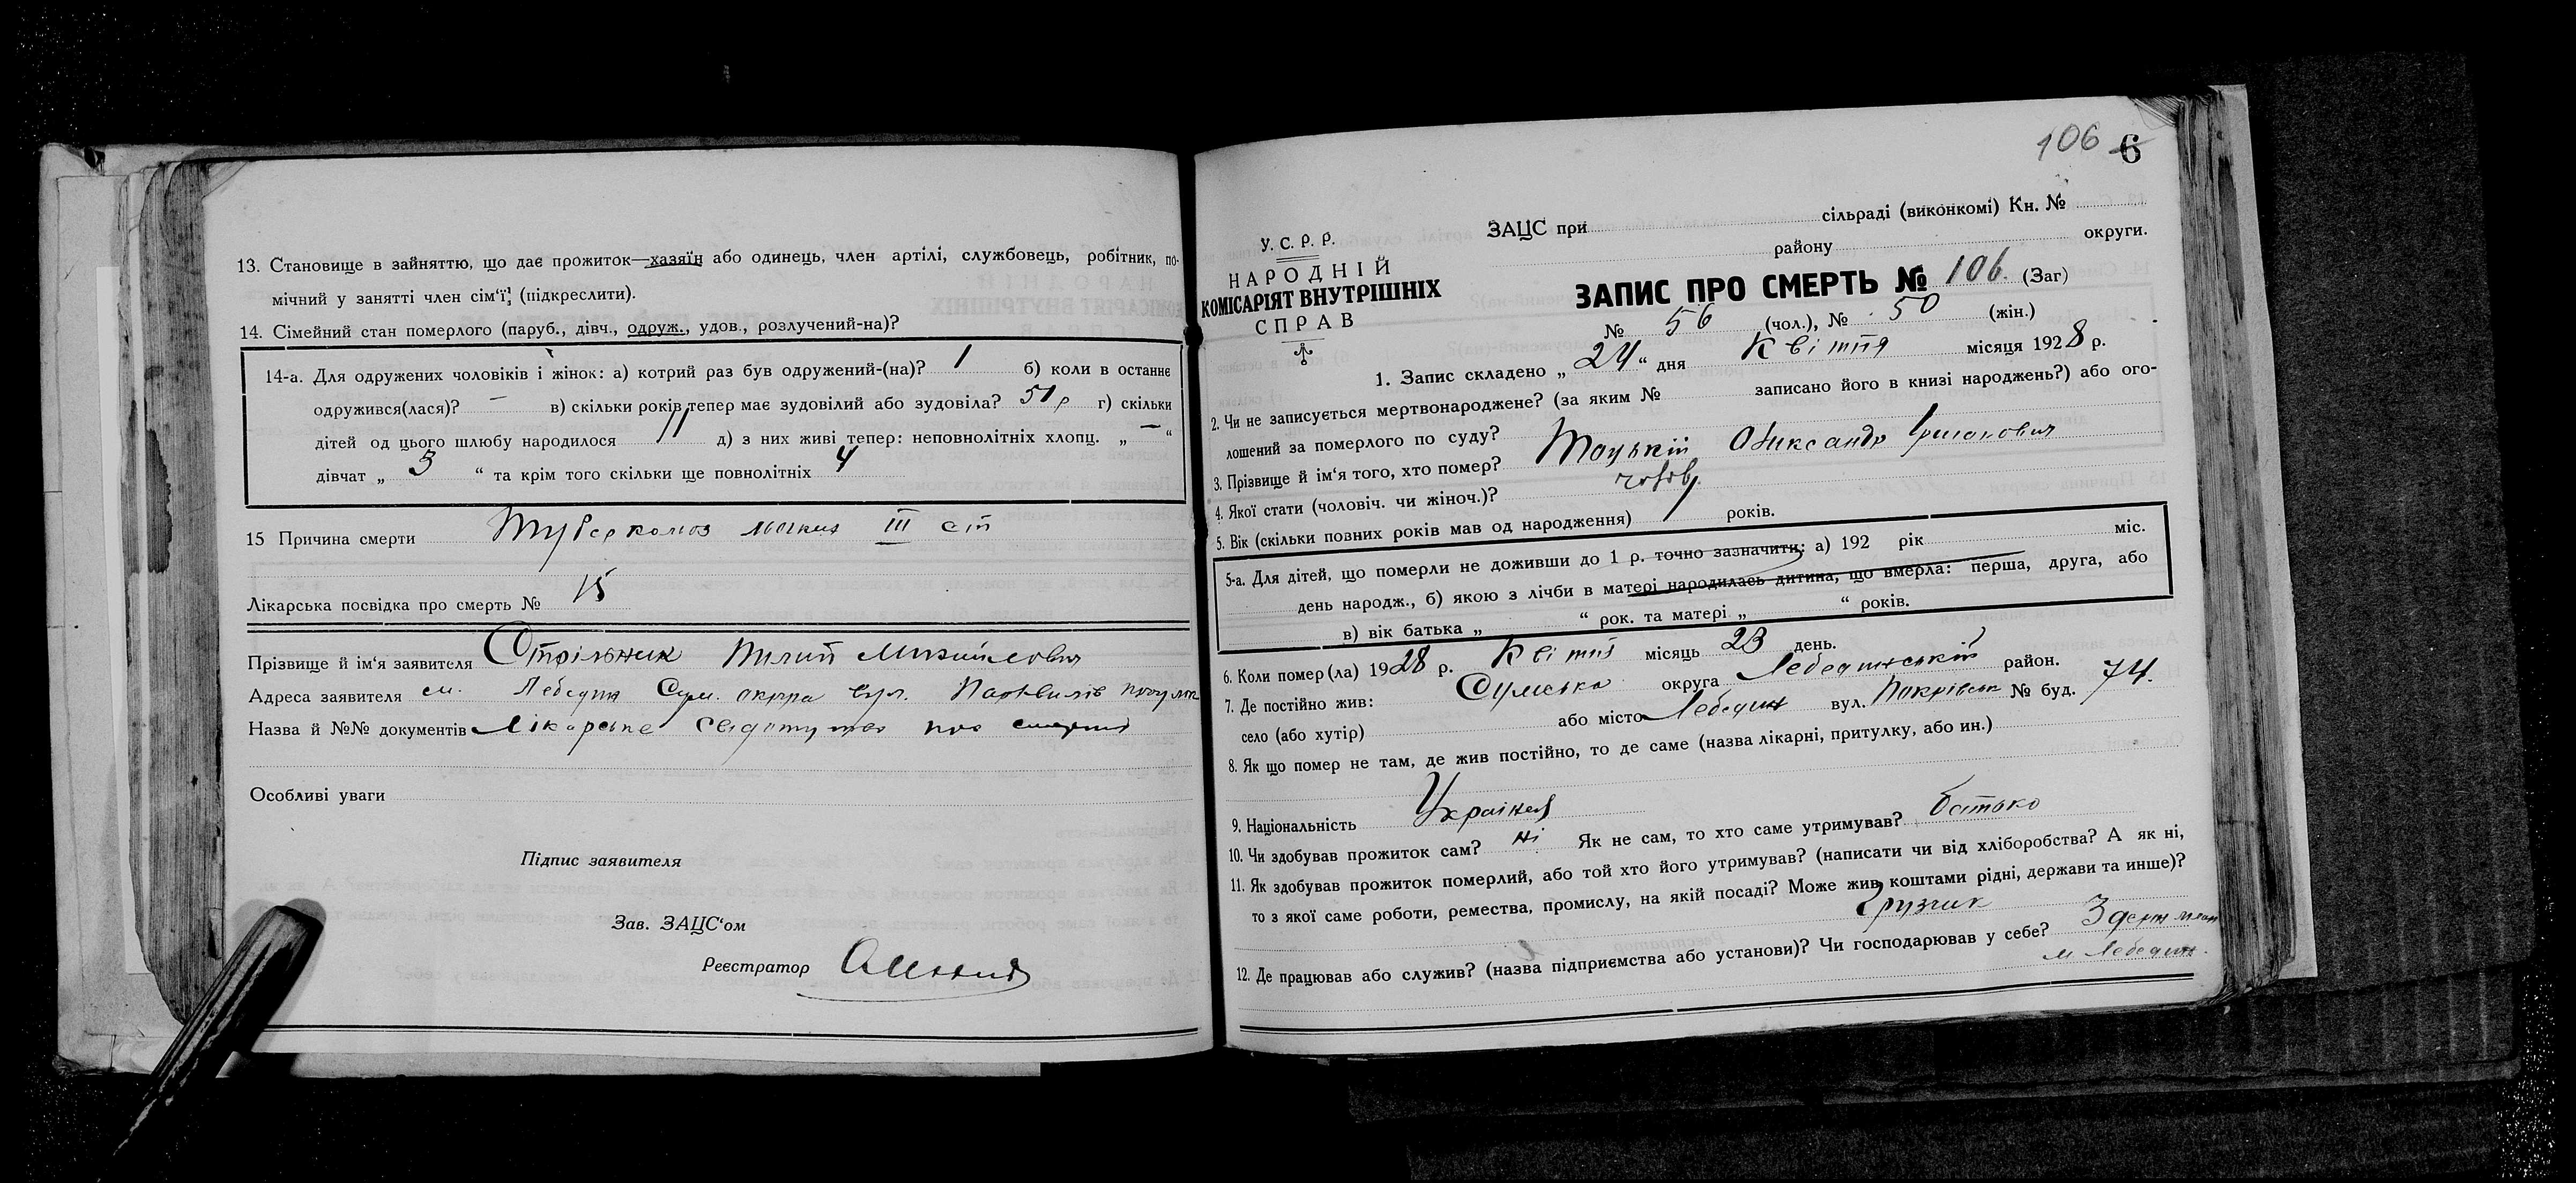 13. Становище в зайняттю, що дає прожиток—хазяїн або одинець, член артілі, службовець, робітник, по-
мічний у занятті член сім'ї; (підкреслити).
14. Сімейний стан померлого (паруб., дівч., одруж., удов., розлучений-на)?
14-а. Для одружених чоловіків і жінок: а) котрий раз був одружений-(на)? 1 б) коли в останнє
одружився(лася)? — в) скільки років тепер має зудовілий або зудовіла? 51 р г) скільки
дітей од цього шлюбу народилося 11 д) з них живі тепер: неповнолітніх хлопц. „ — “
дівчат „ 3 “ та крім того скільки ще повнолітніх 4
15 Причина смерти Туберкольоз III ст
Лікарська посвідка про смерть № 15
Прізвище й ім'я заявителя Стрільник Михайлович
Адреса заявителя м. Лебедин Сум. округа вул.
Назва й №№ документів Лікарське свідотутво про смерть
Особливі уваги
Підпис заявителя
Зав. ЗАЦС'ом
Реєстратор
106 6
У. С. Р. Р.
НАРОДНІЙ
КОМІСАРІЯТ ВНУТРІШНІХ
СПРАВ
ЗАЦС при сільраді (виконкомі) Кн. №
району округи.
ЗАПИС ПРО СМЕРТЬ № 106. (Заг)
№ 56 (чол.), № 50 (жін.)
1. Запис складено „ 24 “ дня Квітня місяця 1928 р.
2. Чи не записується мертвонароджене? (за яким № записано його в книзі народжень?) або ого-
лошений за померлого по суду?
3. Прізвище й ім'я того, хто помер? Олександр
4. Якої стати (чоловіч. чи жіноч.)? чолов.
5. Вік (скільки повних років мав од народження) років.
5-а. Для дітей, що померли не доживши до 1 р. точно зазначити: а) 192 рік міс.
день народж., б) якою з лічби в матері народилась дитина, що вмерла: перша, друга, або
в) вік батька „ “ рок. та матері „ “ років.
6. Коли помер(ла) 1928 р. Квітня місяць 23 день.
7. Де постійно жив: Сумська округа Лебединський район.
село (або хутір) або місто Лебедин вул. Покрівськ № буд. 74.
8. Як що помер не там, де жив постійно, то де саме (назва лікарні, притулку, або ин.)
9. Національність
10. Чи здобував прожиток сам? ні Як не сам, то хто саме утримував? батько
11. Як здобував прожиток померлий, або той хто його утримував? (написати чи від хліборобства? А як ні,
то з якої саме роботи, ремества, промислу, на якій посаді? Може жив коштами рідні, держави та инше)?
Грузчик
12. Де працював або служив? (назва підприємства або установи)? Чи господарював у себе?
м Лебедин.